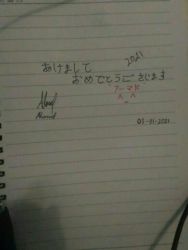 2021
あけまして
おめでとうございます
アーマド
Ahmad
03-01-2021